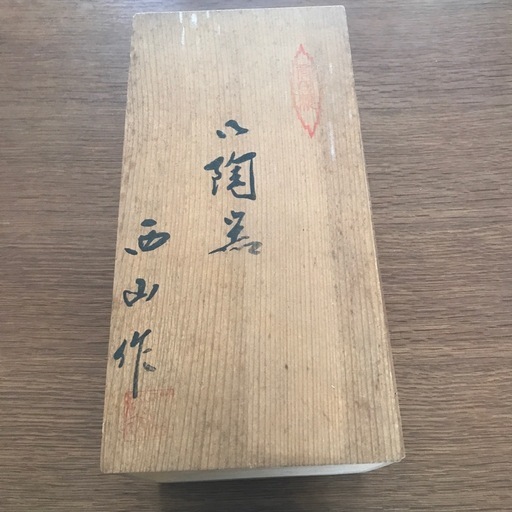 御陶器
西山作